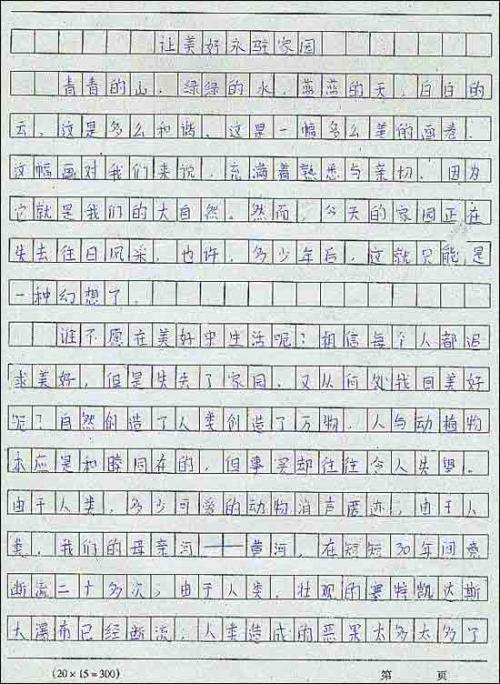 让美好永驻家园
青青的山，绿绿的水，蓝蓝的天，白白的
云，这是多么和谐，这是一幅多么美的画卷．
这幅画对我们来说，充满着熟悉与亲切，因为
它就是我们的大自然。然而，今天的家园正在
失去往日风采，也许，多少年后，这就只能是
一种幻想了．
谁不愿在美好中生活呢？相信每个人都追
求美好，但是失去了家园，又从何处找回美好
呢？自然创造了人类创造了万物，人与动植物
本应是和睦同在的，但事实却往往令人失望。
由于人类，多少可爱的动物消声匿迹，由于人
类，我们的母亲河——黄河，在短短30年间竟
断流二十多次，由于人类，壮观的赛特凯达斯
大瀑布已经断流，人类造成的恶果太多太多了
（20×15=300） 第 页